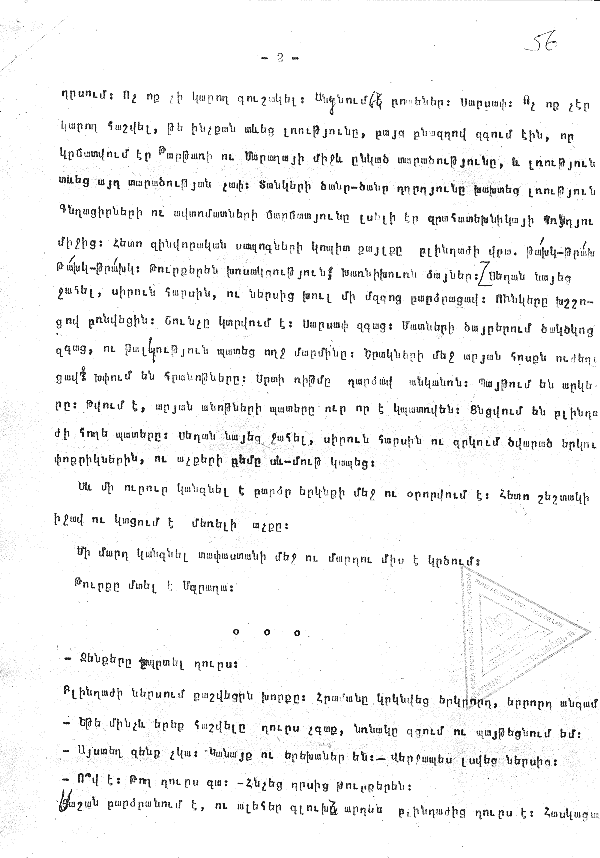 56
- 2 -
դրսում: Ոչ ոք չի կարող գուշակել: Անցնում են րոպեներ: Սարսափ: Ոչ ոք չէր
կարող հաշվել, թե ինչքան տևեց լռությունը, բայց բնազդով զգում էին, որ
կրճատվում էր Թարթառի ու Մարաղայի միջև ընկած տարածությունը, և լռություն
տևեց այդ տարածության չափ: Տանկերի ծանր-ծանր դղրդյունը խախտեց լռություն
Գնդացիրների ու ավտոմատների ճարճատյունը լսելի էր զրահատեխնիկայի դղրդյու
միջից: Հետո զինվորական սապոգների կոպիտ քայլքը բլինդաժի վրա. թա՛խկ-թրա՛խ
թա՛խկ-թրա՛խկ: Թուրքերեն խոսակցություն: Խառնիխուռն ձայներ: Սեդան նայեց
ջահել, սիրուն հարսին, ու ներսից խուլ մի մզզոց բարձրացավ: Ունկերը խշշո-
ցով բռնվեցին: Շունչը կտրվում է: Սարսափ զգաց: Մատների ծայրերում ծակծկոց
զգաց, ու թալկություն պատեց ողջ մարմինը: Երակների մեջ արյան հոսքն ուժեղ
ցավ: Խփում են հրանոթները: Սրտի ռիթմը դարձավ անկանոն: Պայթում են արկե-
րը: Թվում է, արյան անոթների պատերը ուր որ է կպատռվեն: Ցնցվում են բլինդա
ժի հողե պատերը: Սեդան նայեց ջահել, սիրուն հարսին ու գրկում ծվարած երկու
փոքրիկներին, ու աչքերի դեմը սև-մութ կապեց:
Սև մի ուրուր կանգնել է բարձր երկնքի մեջ ու օրորվում է: Հետո շեշտակի
իջավ ու կտցում է մեռելի աչքը:
Մի մարդ կանգնել տափաստանի մեջ ու մարդու միս է կրծում:
Թուրքը մտել է Մարաղա:
o o o
- Զենքերը շպրտել դուրս:
Բլինդաժի ներսում քաշվեցին խորքը: Հրամանը կրկնվեց երկրորդ, երրորդ անգամ
- Եթե մինչև երեք հաշվելը դուրս չգաք, նռնակը գցում ու պայթեցնում եմ:
- Այստեղ զենք չկա: Կանայք ու երեխաներ են:- Վերջապես լսվեց ներսից:
- Ո՞վ է: Թող դուրս գա: -Հնչեց դրսից թուրքերեն:
Սաշան բարձրանում է, ու ալեհեր գլուխն արդեն բլինդաժից դուրս է: Հասկացա